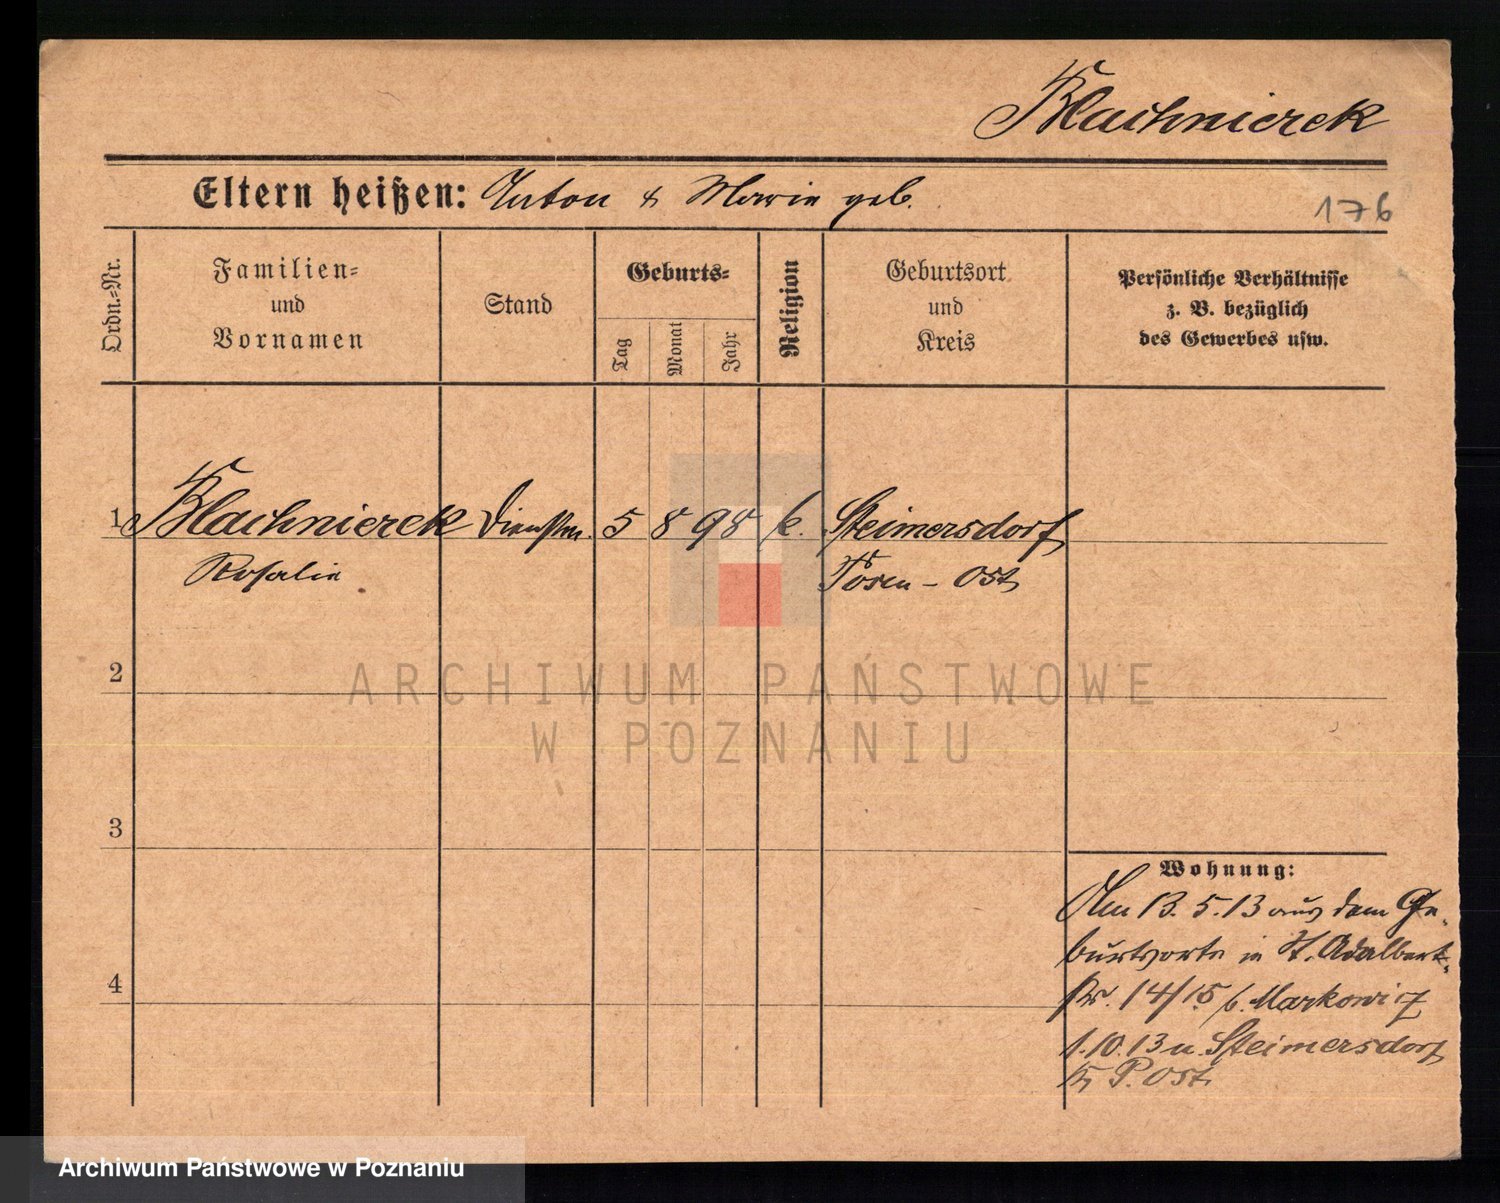 Blachnierek
Eltern heißen: Anton & Marie geb.
176
Ordn.-Nr.
Familien-
und
Vornamen
Stand
Geburts-
Tag
Monat
Jahr
Religion
Geburtsort
und
Kreis
Persönliche Verhältnisse
z. B. bezüglich
des Gewerbes usw.
1 Blachnierek Dienstm. 5 8 98 k. Steimersdorf
Rosalie Posen - Ost
ARCHIWUM PAŃSTWOWE
W POZNANIU
2
3
4
Wohnung:
Am 13.5.13 aus dem Ge-
burtsorte in St. Adalbert-
str. 14/15 b. Markowicz
1.10.13 n. Steimersdorf
Kr. P. Ost
Archiwum Państwowe w Poznaniu